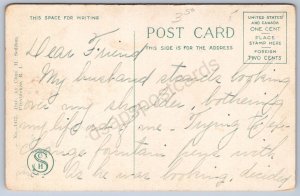 3.50
THIS SPACE FOR WRITING
POST CARD
THIS SIDE IS FOR THE ADDRESS
UNITED STATES
AND CANADA
ONE CENT
PLACE
STAMP HERE
FOREIGN
TWO CENTS
Dear Friend
My husband stands looking
over my shoulder, bothering
my life out of me. Trying to ex-
change fountain pens with
me as he was looking, decided
S H